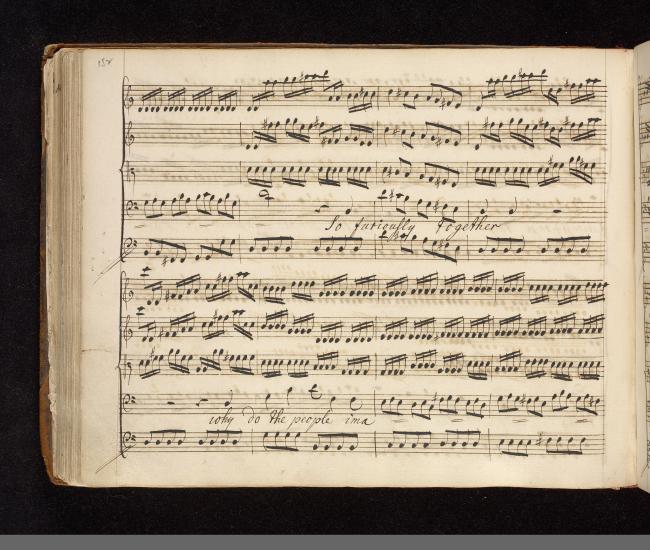 So furiously together
why do the people ima